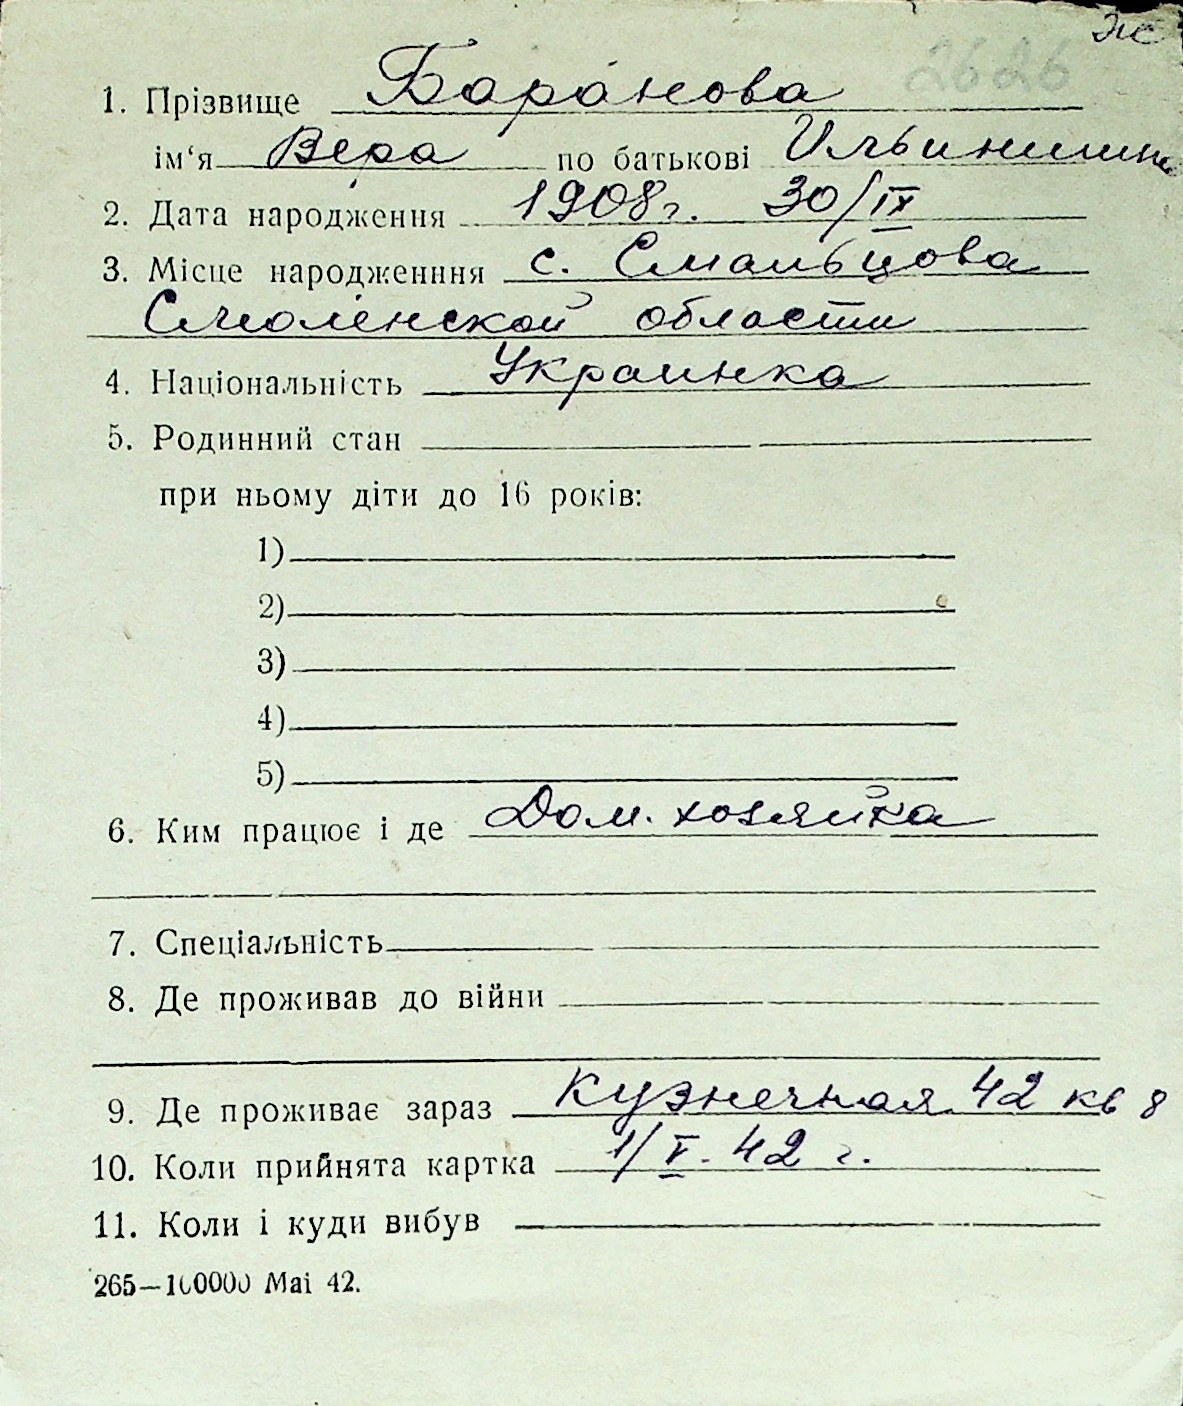 Жс
2626
1. Прізвище Баранова
ім‘я Вера по батькові Ильинишна
2. Дата народження 1908 г. 30/IX
3. Місце народженння с. Смальцова
Смоленской области
4. Національність Украинка
5. Родинний стан
при ньому діти до 16 років:
1)
2)
3)
4)
5)
6. Ким працює і де Дом. хозяйка
7. Спеціальність
8. Де проживав до війни
9. Де проживає зараз Кузнечная 42 кв 8
10. Коли прийнята картка 1/V. 42 г.
11. Коли і куди вибув
265—100000 Маі 42.